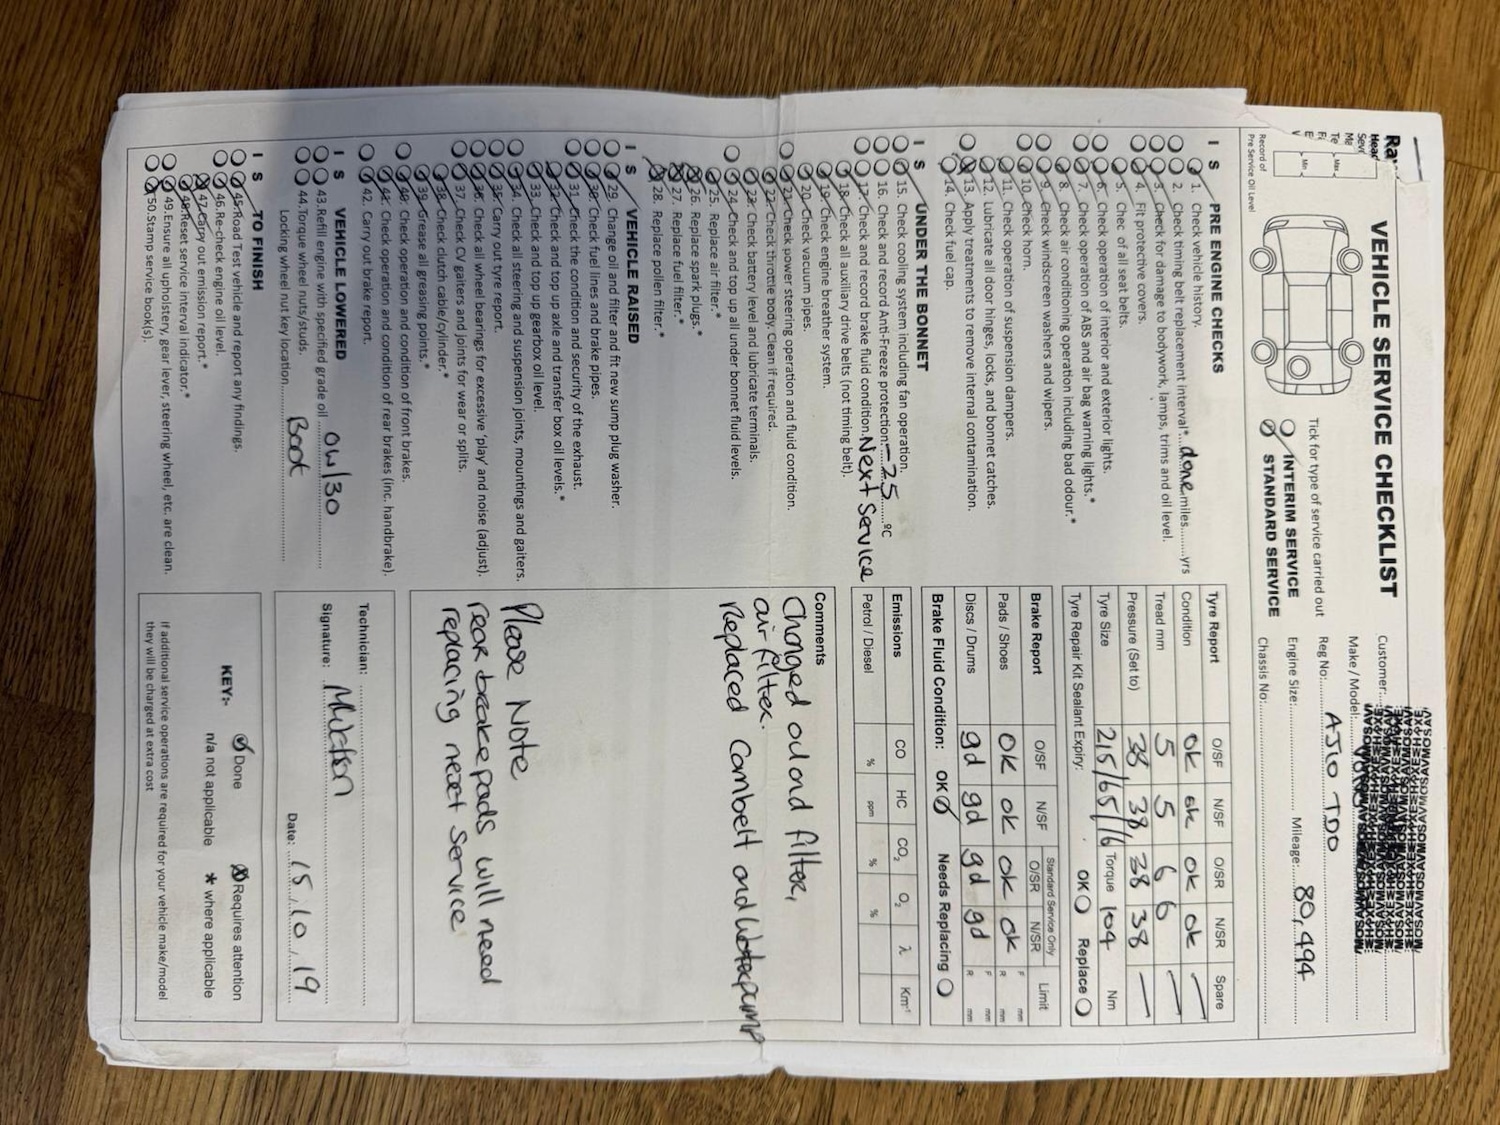 VEHICLE SERVICE CHECKLIST
Record of
Pre Service Oil Level
Min
Max
Tick for type of service carried out
INTERIM SERVICE
STANDARD SERVICE
Customer:
Make / Model:
Reg No: AJ10 TDO
Engine Size: Mileage: 80,494
Chassis No:
I S PRE ENGINE CHECKS
1. Check vehicle history.
2. Check timing belt replacement interval* done miles yrs
3. Check for damage to bodywork, lamps, trims and oil level.
4. Fit protective covers.
5. Chec of all seat belts.
6. Check operation of interior and exterior lights.
7. Check operation of ABS and air bag warning lights.*
8. Check air conditioning operation including bad odour.*
9. Check windscreen washers and wipers.
10. Check horn.
11. Check operation of suspension dampers.
12. Lubricate all door hinges, locks, and bonnet catches.
13. Apply treatments to remove internal contamination.
14. Check fuel cap.
I S UNDER THE BONNET
15. Check cooling system including fan operation.
16. Check and record Anti-Freeze protection: -25 ºC
17. Check and record brake fluid condition. Next Service
18. Check all auxiliary drive belts (not timing belt).
19. Check engine breather system.
20. Check vacuum pipes.
21. Check power steering operation and fluid condition.
22. Check throttle body. Clean if required.
23. Check battery level and lubricate terminals.
24. Check and top up all under bonnet fluid levels.
25. Replace air filter.*
26. Replace spark plugs.*
27. Replace fuel filter.*
28. Replace pollen filter.*
I S VEHICLE RAISED
29. Change oil and filter and fit new sump plug washer.
30. Check fuel lines and brake pipes.
31. Check the condition and security of the exhaust.
32. Check and top up axle and transfer box oil levels.*
33. Check and top up gearbox oil level.
34. Check all steering and suspension joints, mountings and gaiters.
35. Carry out tyre report.
36. Check all wheel bearings for excessive 'play' and noise (adjust).
37. Check CV gaiters and joints for wear or splits.
38. Check clutch cable/cylinder.*
39. Grease all greasing points.*
40. Check operation and condition of front brakes.
41. Check operation and condition of rear brakes (inc. handbrake).
42. Carry out brake report.
I S VEHICLE LOWERED
43. Refill engine with specified grade oil 0W/30
44. Torque wheel nuts/studs.
Locking wheel nut key location Boot
I S TO FINISH
45. Road Test vehicle and report any findings.
46. Re-check engine oil level.
47. Carry out emission report.*
48. Reset service interval indicator.*
49. Ensure all upholstery, gear lever, steering wheel, etc. are clean.
50. Stamp service book(s).
Tyre Report O/SF N/SF O/SR N/SR Spare
Condition ok ok ok ok —
Tread mm 5 5 6 6 —
Pressure (Set to) 38 38 38 38 —
Tyre Size 215/65/16 Torque 104 Nm
Tyre Repair Kit Sealant Expiry: OK Replace
Brake Report O/SF N/SF Standard Service Only O/SR N/SR Limit
Pads / Shoes OK OK OK OK F mm R mm
Discs / Drums gd gd gd gd F mm R mm
Brake Fluid Condition: OK Needs Replacing
Emissions CO HC CO₂ O₂ λ Km⁻¹
Petrol / Diesel % ppm % %
Comments
Changed oil and filter,
air filter.
Replaced Cambelt and Waterpump
Please Note
rear brake pads will need
replacing next service
Technician:
Signature:
Date: 15.10.19
KEY:- Done Requires attention
n/a not applicable * where applicable
If additional service operations are required for your vehicle make/model
they will be charged at extra cost